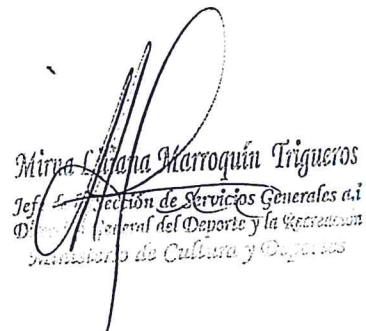 Mirna Liliana Marroquín Trigueros
Jefe de Sección de Servicios Generales a.i
Dirección General del Deporte y la Recreación
Ministerio de Cultura y Deportes